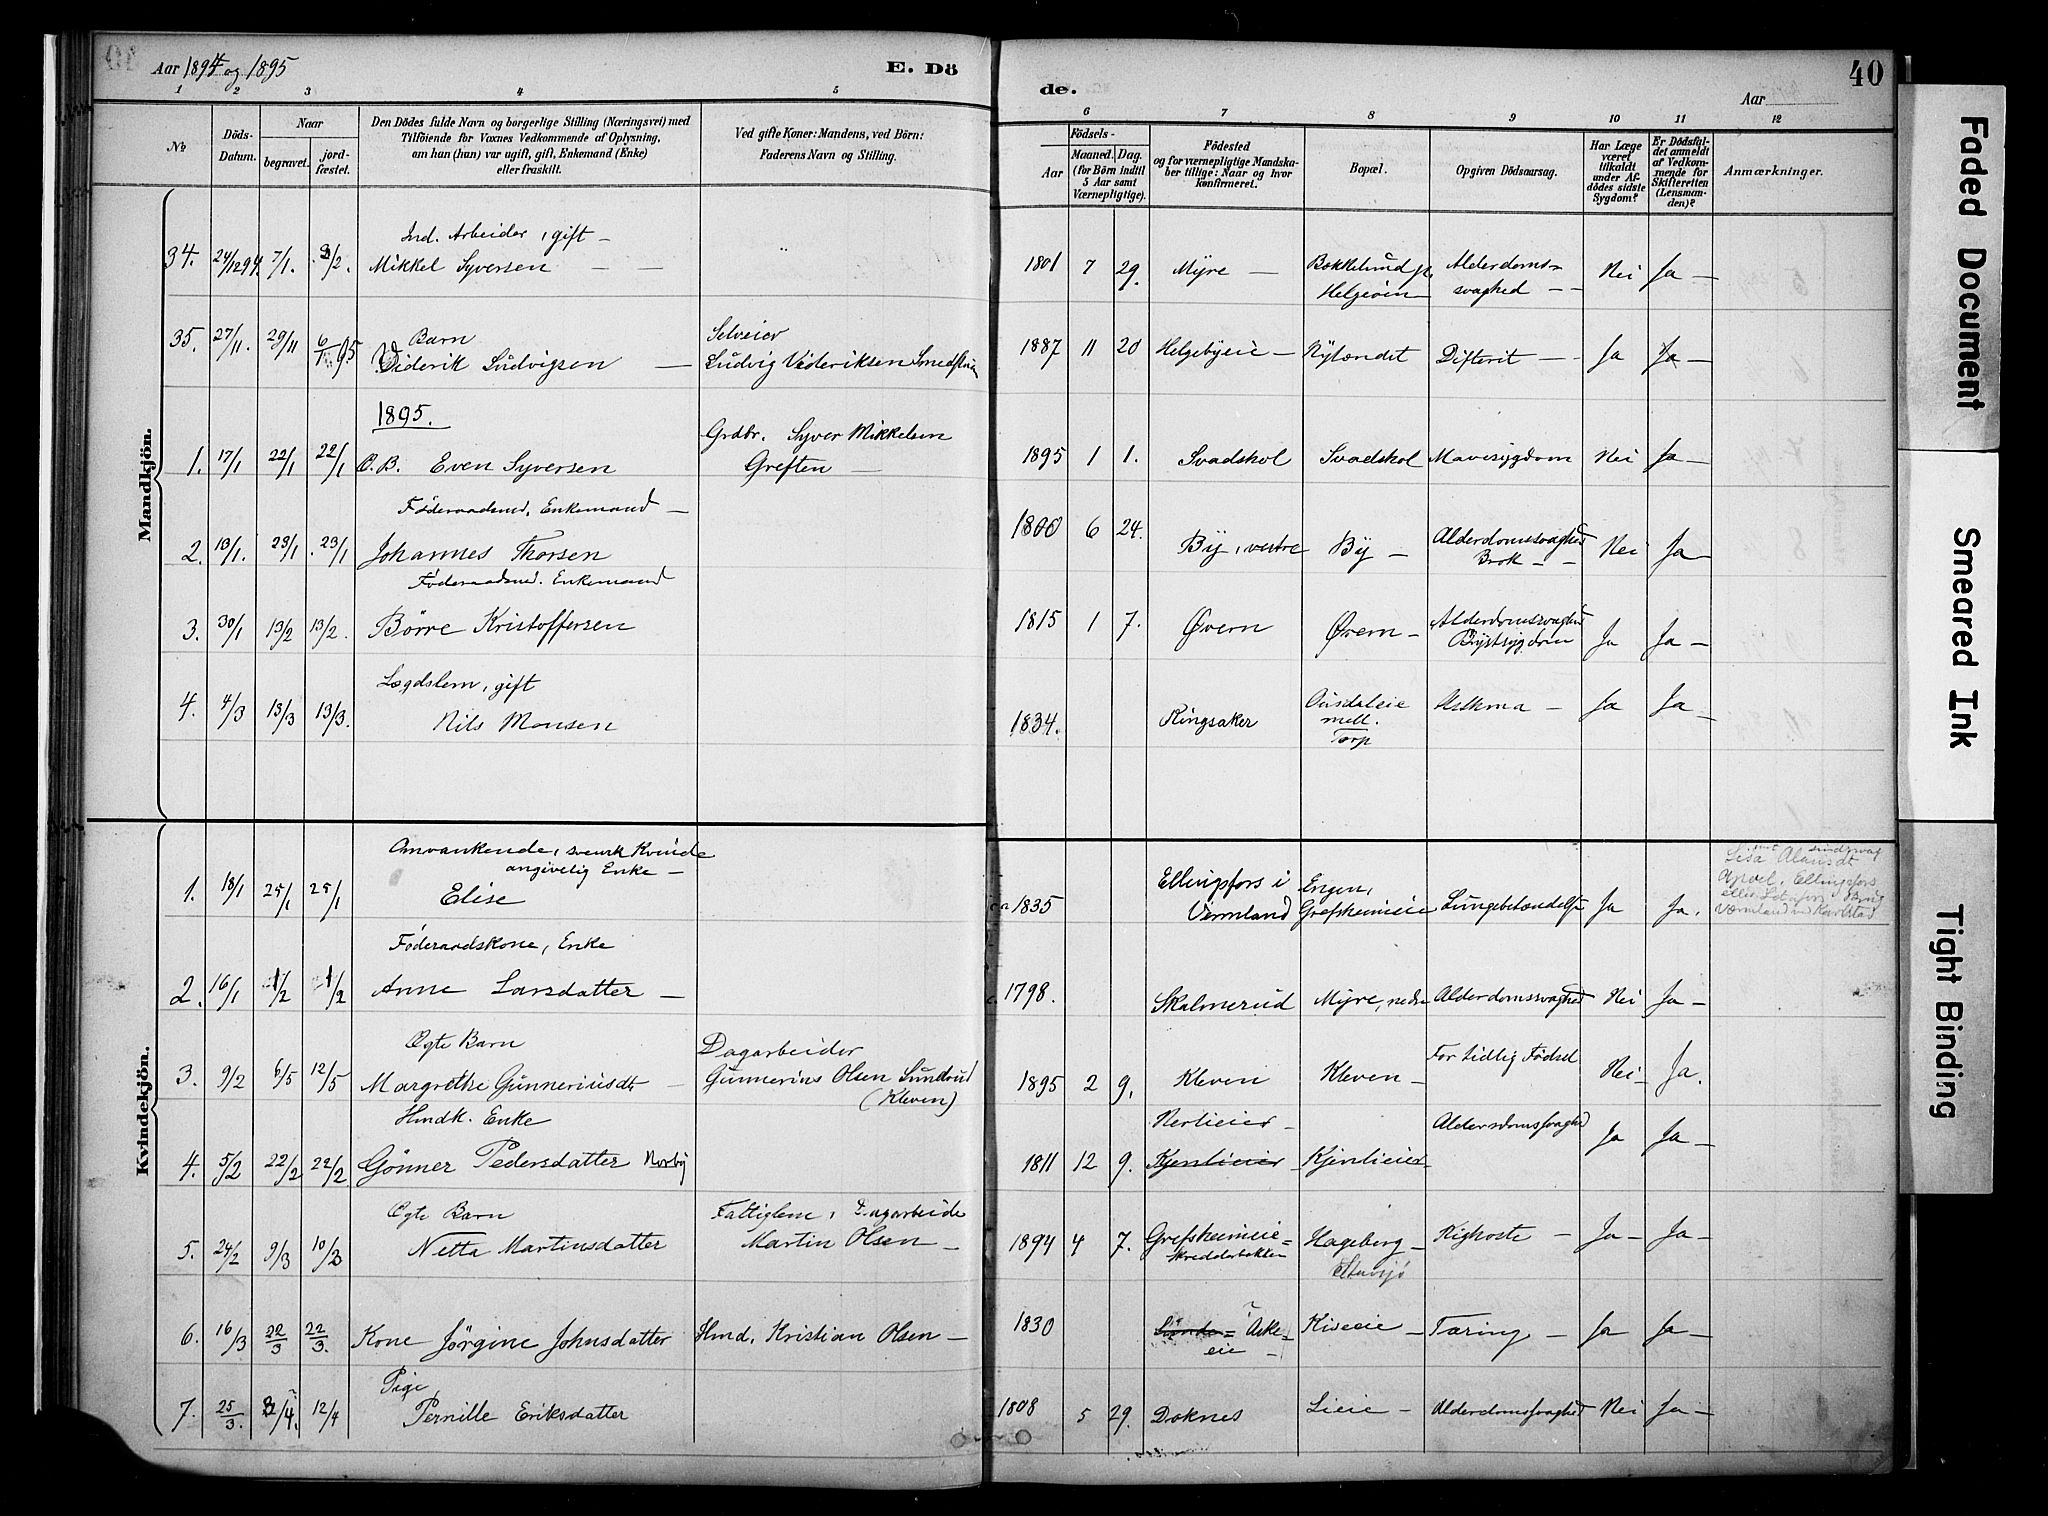 Aar 1894 og 1895
E. Dö
de.
Aar
40
1 2 3 4 5 6 7 8 9 10 11 12
No
Döds-Datum.
Naar
begravet.
jordfæstet.
Den Dödes fulde Navn og borgerlige Stilling (Næringsvei) med
Tilföiende for Voxnes Vedkommende af Oplysning,
om han (hun) var ugift, gift, Enkemand (Enke)
eller fraskilt.
Ved gifte Koner: Mandens, ved Börn:
Faderens Navn og Stilling.
Födsels-
Aar
Maaned. Dag.
(for Börn indtil
5 Aar samt
Værnepligtige).
Födested
og for værnepligtige Mandskaber tillige: Naar og hvor
konfirmeret.
Bopæl.
Opgiven Dödsaarsag.
Har Læge
været
tilkaldt
under Afdödes sidste
Sygdom?
Er Dödsfaldet anmeldt
af Vedkommende for
Skifteretten
(Lensmanden)?
Anmærkninger.
Mandkjön.
Ind. Arbeider, gift –
34. 24/12 94. 7/1. 3/2. Mikkel Syversen – – 1801 7 29. Myre – Alderdoms=
Helgeöen svaghed – – Nei Ja –
Barn Selveier
35. 27/11. 29/11 6/1 95 Diderik Ludvigsen – Ludvig Dideriksen 1887 11 20 Helgebyeie – Nylændet Difterit – – Ja Ja –
1895.
Grdbr. Syver Mikkelsen
1. 17/1 22/1 22/1 O. B. Even Syversen Greften – 1895 1 1. Svadskol Svadskol Mavesygdom Nei Ja –
Föderaadsmd, Enkemand –
2. 13/1. 23/1 23/1 Johannes Thorsen 1800 6 24. By, vestre By – Alderdomssvaghed
Brok – – Nei Ja
Föderaadsmd. Enkemand
3. 30/1 13/2 13/2. Börre Kristoffersen 1815 1 7. Øvern Øvern – Alderdomssvaghed
Brystsygdom Ja Ja –
Lægdslem, gift
4. 4/3 13/3 13/3. Nils Monsen 1834. Ringsaker Ousdaleie
mell.
Torp Asthma – Ja Ja –
Kvindekjön.
Omvankende, svensk Kvinde
angivelig Enke –
1. 18/1 25/1 25/1 Elise ca 1835 Ellingsfors i
Vermland Engen,
Grefsheimeie Lungebetændelse Ja Ja.
Föderaadskone, Enke
2. 16/1 1/2 1/2 Anne Larsdatter – c. 1798. Skalmerud Myre, nedre Alderdomssvaghed Nei Ja –
Ægte Barn Dagarbeider
3. 9/2 6/5 12/5 Margrethe Gunneriusdt – Gunnerius Olsen Sundrud
(Kleven) 1895 2 9. Kleven Kleven – For tidlig Födsel Nei – Ja.
Hmdk. Enke Nerlieier –
4. 5/2 22/2 22/2. Gönner Pedersdatter Norby 1811 12 9. Kjenlieier Kjenlieier – Aldersdomssvaghed Ja Ja –
Ægte Barn Fattiglem, Dagarbeide
5. 24/2 9/3 10/3 Netta Martinsdatter Martin Olsen – 1894 4 7. Grefsheimeie=
Skredderbakken Hageberg –
Stavsjö Kighoste – Ja – Ja –
6. 16/3 22/3 22/3. Kone Jörgine Johnsdatter Hmd. Kristian Olsen – 1830 Aske-
eie – Kiseeie – Tæring – Ja Ja –
Pige,
7. 25/3. 8/4. 12/4 Pernille Eriksdatter 1808 5 29. Doknes Lieie – Alderdomssvaghed Nei Ja –
Faded Document
Smeared Ink
Tight Binding